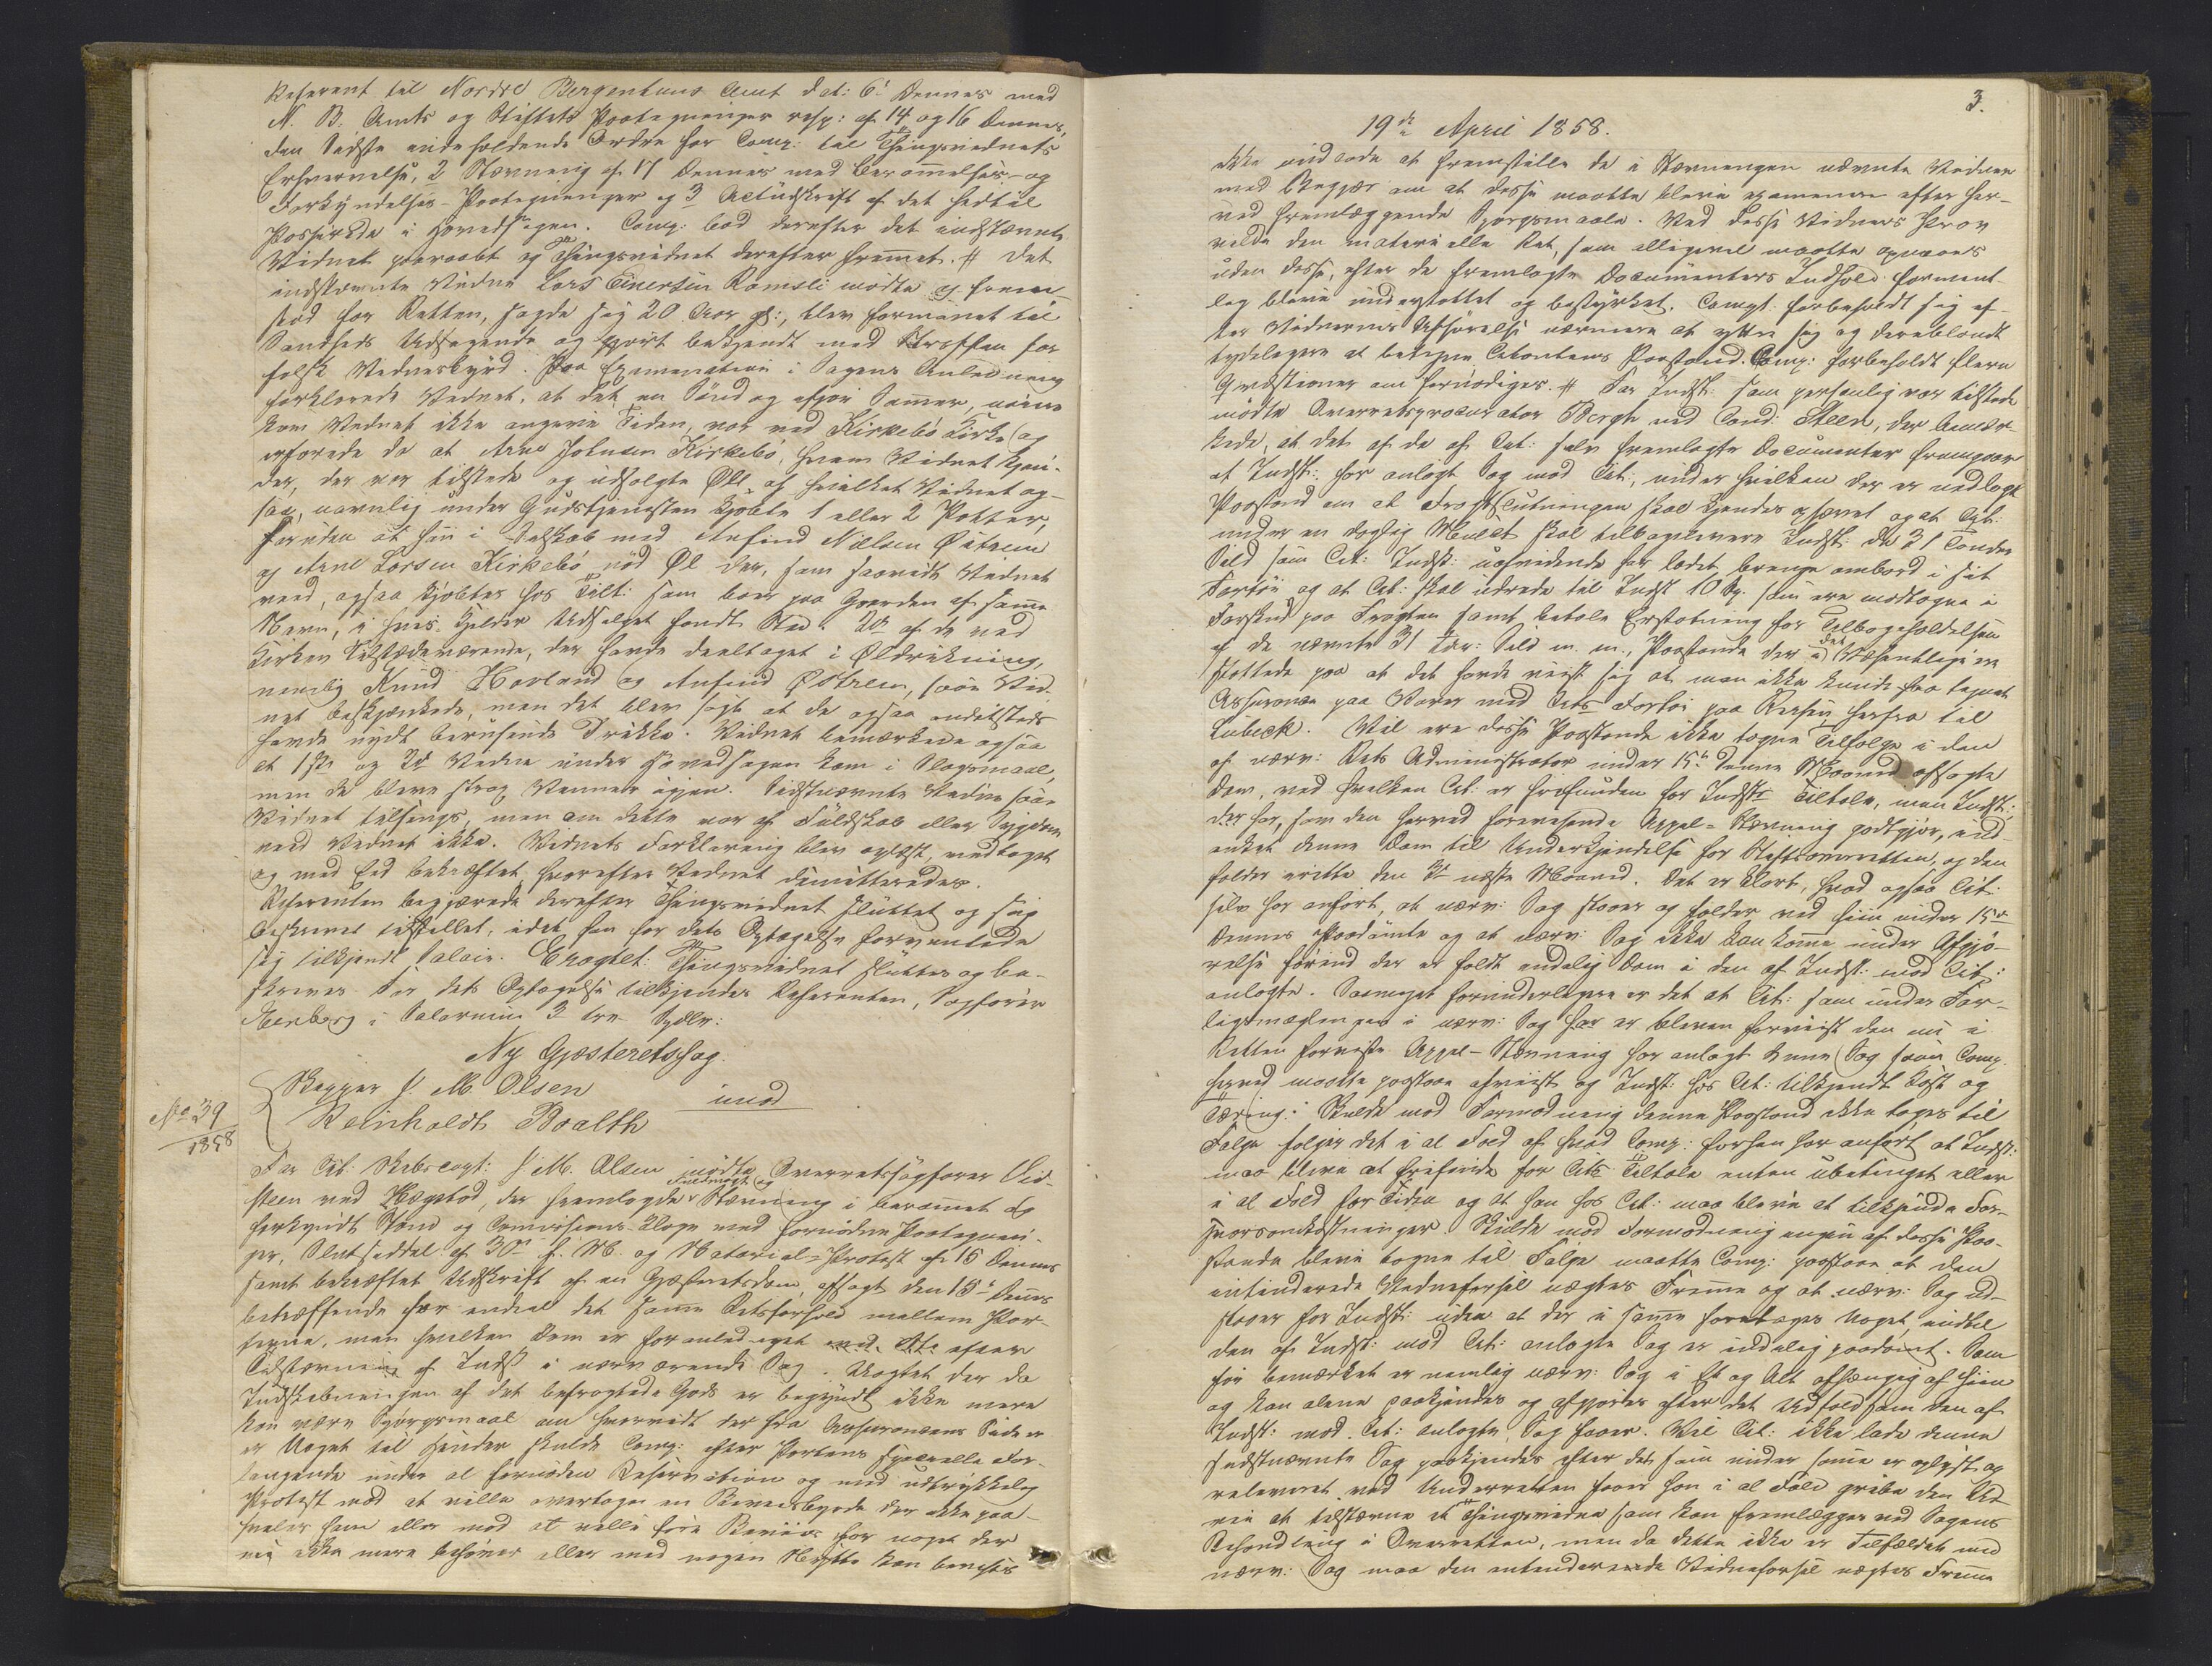 Referent til Nordre Bergenhuus Amt dat: 6' dennes med
N. B. Amts og Stiftets Paategninger resp: af 14 og 16 dennes,
den Sidste indeholdende Ordre for Comp: til Thingsvidnets
Erhvervelse, 2 Stævning af 17 dennes med Berammelses- og
Forkyndelses-Paategninger og 3 Actudskrift af det hidtil
Passerede i Hovedsagen. Comp: bad derefter det indstævnte
Vidnet paaraabt og Thingsvidnet derefter fremmet. # Det
indstævnte Vidne Lars Einersen Ramsli mødte og frem-
stod for Retten, sagde sig 20 Aar gl:, blev formanet til
Sandheds Udsagende og gjort bekjendt med Straffen for
falsk Vidnesbyrd. Paa Examination i Sagens Anledning
forklarede Vidnet, at det en Søndag ifjor Sommer, uden
kom Vidnet ikke angive Tiden, var ved Kirkebø Kirke (og
erfarede da at Arne Johnsen Kirkebø, hvem Vidnet kjen-
der, der var tilstede og udsolgte Øll, af hvilket Vidnet og-
saa, navnlig under Gudstjenesten kjøbte 1 eller 2 Potter,
foruden at han i Selskab med Anfind Nielsen Østrem
og Arne Larsen Kirkebø nød Øl der, som saavidt Vidnet
veed, ogsaa kjøbtes hos Tilt: som boer paa Gaarden af samme
Navn, i hvis Kjelder Udsalget fandt Sted. To af de ved
Kirken Tilstedeværende, der havde deeltaget i Øldrikning,
nemlig Knud Hovland og Anfind Østrem, saae Vid-
net beskjænkede, men det blev sagt at de ogsaa andetsteds
havde nydt berusende Drikke. Vidnet bemærkede ogsaa
at 1ste og 2d Vidne under Hovedsagen kom i Slagsmaal,
men de bleve strax Venner igjen. Sidstnævnte Vidne saae
Vidnet tilsengs, men om dette var af Fuldskab eller Sygdom
veed Vidnet ikke. Vidnets Forklaring blev oplæst, vedtaget
og med Eed bekræftet hvorefter Vidnet dimitteredes.
Referenten begjærede derefter Thingsvidnet sluttet og sig
beskrevet tilstillet, idet han for dets Optagelse formentede
sig tilkjendt Salair. Eragtet: Thingsvidnet sluttes og be-
skrives. For dets Optagelse tilkjendes Referenten, Sagfører
Stenberg i Salarium 3 tre Spdlr:
Ny Gjæsteretssag.
Skipper J. M. Olsen
imod
Reinholdt Boalth
No 39
1858
For Cit: Skibscapt: J. M. Olsen mødte Overretssagfører Vid-
steen ved Hægstad, der fremlagde Fuldmagt og Stævning i berammet og
forkyndt Stand og Commissions-Klage med fornødne Paategnin-
ger, Slutseddel af 30te f. M. og Notarial-Protest af 15 dennes
samt bekræftet Udskrift af en Gjæsteretsdom, afsagt den 15' dennes
betræffende for endeel det samme Retsforhold mellem Par-
terne, men hvilken Dom er foranlediget efter
Indstævning af Indst i nærværende Sag. Uagtet der da
Indskibningen af det befragtede Gods er begyndt ikke mere
kan være Spørgsmaal om hvorvidt der fra Assurancens Side er
er Noget til Hinder skulde Comp: efter Partens specielle For-
langende under al fornøden Reservation og med udtrykkelig
Protest mod at ville overtage en Beviisbyrde der ikke paa-
hviler ham eller mod at ville føre Beviis for noget der
nu ikke mere behøver eller med nogen Nytte kan bevises
3.
19de April 1858.
ikke undlade at fremstille de i Stævningen nævnte Vidner
med Begjær om at disse maatte blive examineret efter her-
ved fremlæggende Spørgsmaale. Ved disse Vidners Prov
vilde den materielle Ret, som alligevel maatte
uden disse, efter de fremlagte Documenters Indhold forment-
lig blive understøttet og bestyrket. Compt. forbeholdt sig ef-
ter Vidnernes Afhørelse nærmere at yttre sig og deriblandt
tydeligere at betegne Citantens Paastand. Comp: forbeholdt flere
Qvæstioner om fornødiges. # For Indst: som personlig var tilstede
mødte Overretsprocurator Bergh ved Cand: Steen, der bemær-
kede, at det af de af Cit: selv fremlagte Documenter fremgaar
at Indst: har anlagt Sag mod Cit:, under hvilken der er nedlagt
Paastand om at Fragtslutningen skal kjendes ophævet og at Cit:
under en daglig Mulct skal tilbagelevere Indst: de 31 Tønder
Sild som Cit: Indst: uafvidende har ladet bringe ombord i sit
Fartøi og at Cit: skal udrede til Indst 10 Sp. som ere modtagne i
Forskud paa Fragten samt betale Erstatning for Tilbageholdelsen
af de nævnte 31 Tdr: Sild m. m., Paastande der i det Væsentlige er
støttede paa at det havde viist sig at man ikke kunde faa tegnet
Assurance paa Varer med Cits Fartøi paa Reisen herfra til
Lübeck. Vil ere disse Paastande ikke tagne Tilfølge i den
af nærv: Rets Administrator under 15de denne Maaned afsagte
Dom, ved hvilken Cit: er frifunden for Indsts Tiltale, men Indst:
der har, som den herved forevisende Appel-Stævning godtgjør, ind-
anket denne Dom til Underkjendelse for Stiftsoverretten, og den
falder irette den næste Maaned. Det er klart, hvad ogsaa Cit:
selv har anført, at nærv: Sag staaer og falder ved hiin under 15d
dennes Paadømte og at nærv: Sag ikke kan komme under Afgjø-
relse førend der er faldt endelig Dom i den af Indst: mod Cit:
anlagte. Saameget forunderligere er det at Cit: som under For-
ligsmæglingen i nærv: Sag har er bleven foreviist den nu i
Retten foreviste Appel-Stævning har anlagt denne Sag saa Comp.
herved maatte paastaae afviist og Indst: hos Cit: tilkjendt Kost og
Tæring: Skulde mod Formodning denne Paastand ikke tages til
Følge følger det i al Fald af hvad Comp: forhen har anført at Indst:
maa blive at frifinde for Cits Tiltale enten ubetinget eller
i al Fald for Tiden og at han hos Cit: maa blive at tilkjende For-
svarsomkostninger. Skulde mod Formodning ingen af disse Paa-
stande blive tagne til Følge maatte Comp: paastaae at den
intenderede Vidneførsel nægtes Fremme og at nærv: Sag ud-
staaer for Indst: uden at der i samme foretages Noget, indtil
den af Indst: mod Cit: anlagte Sag er endelig paadømt. Som
før bemærket er nemlig nærv: Sag i Et og Alt afhængig af hiin
og kan alene paakjendes og afgjøres efter det Udfald som den af
Indst: mod Cit: anlagte Sag faaer. Vil Cit: ikke lade denne
sidstnævnte Sag paakjendes efter det som under samme er oplyst og
releveret ved Underretten faaer han i al Fald gribe den Ud-
vei at tilstævne et Thingsvidne som kan fremlægges ved Sagens
Behandling i Overretten, men da dette ikke er Tilfældet med
nærv: Sag maa den intenderende Vidneførsel nægtes Fremme